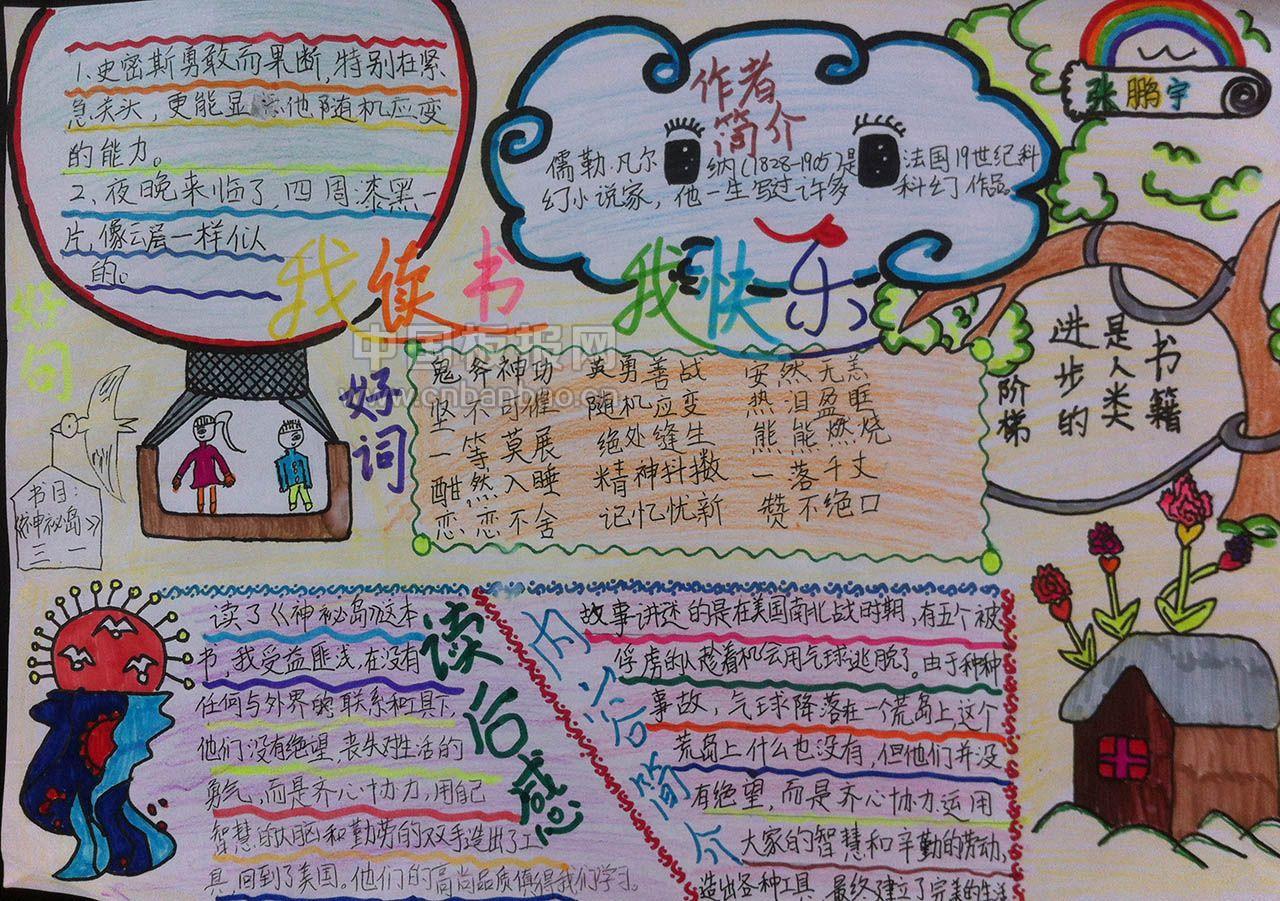 1、史密斯勇敢而果断,特别在紧
急关头，更能显 他随机应变
的能力。
2、夜晚来临了,四周漆黑一
片,像云层一样似人
的。
好句
作者
简介
儒勒·凡尔 纳(1828-1905)是 法国19世纪科
幻小说家，他一生写过许多 科幻作品。
张鹏宇
我读书 我快乐
中国板报网
www.cnbanbao.cn
书籍
是人类
进步的
阶梯
好词
鬼斧神功 英勇善战 安然无恙
坚不可催 随机应变 热泪盈眶
一筹莫展 绝处缝生 熊熊燃烧
酣然入睡 精神抖擞 一落千丈
恋恋不舍 记忆忧新 赞不绝口
书目:
《神秘岛》
三.一
读后感
读了《神秘岛》这本
书,我受益匪浅,在没有
任何与外界的联系和工具下,
他们没有绝望,丧失对生活的
勇气,而是齐心协力,用自己
智慧的头脑和勤劳的双手造出了工
具,回到了美国。他们的高尚品质值得我们学习。
内容简介
故事讲述的是在美国南北战时期,有五个被
俘虏的人趁着机会用气球逃脱了。由于种种
事故，气球降落在一个荒岛上,这个
荒岛上什么也没有,但他们并没
有绝望，而是齐心协力运用
大家的智慧和辛勤的劳动,
造出各种工具,最终建立了完美的生活